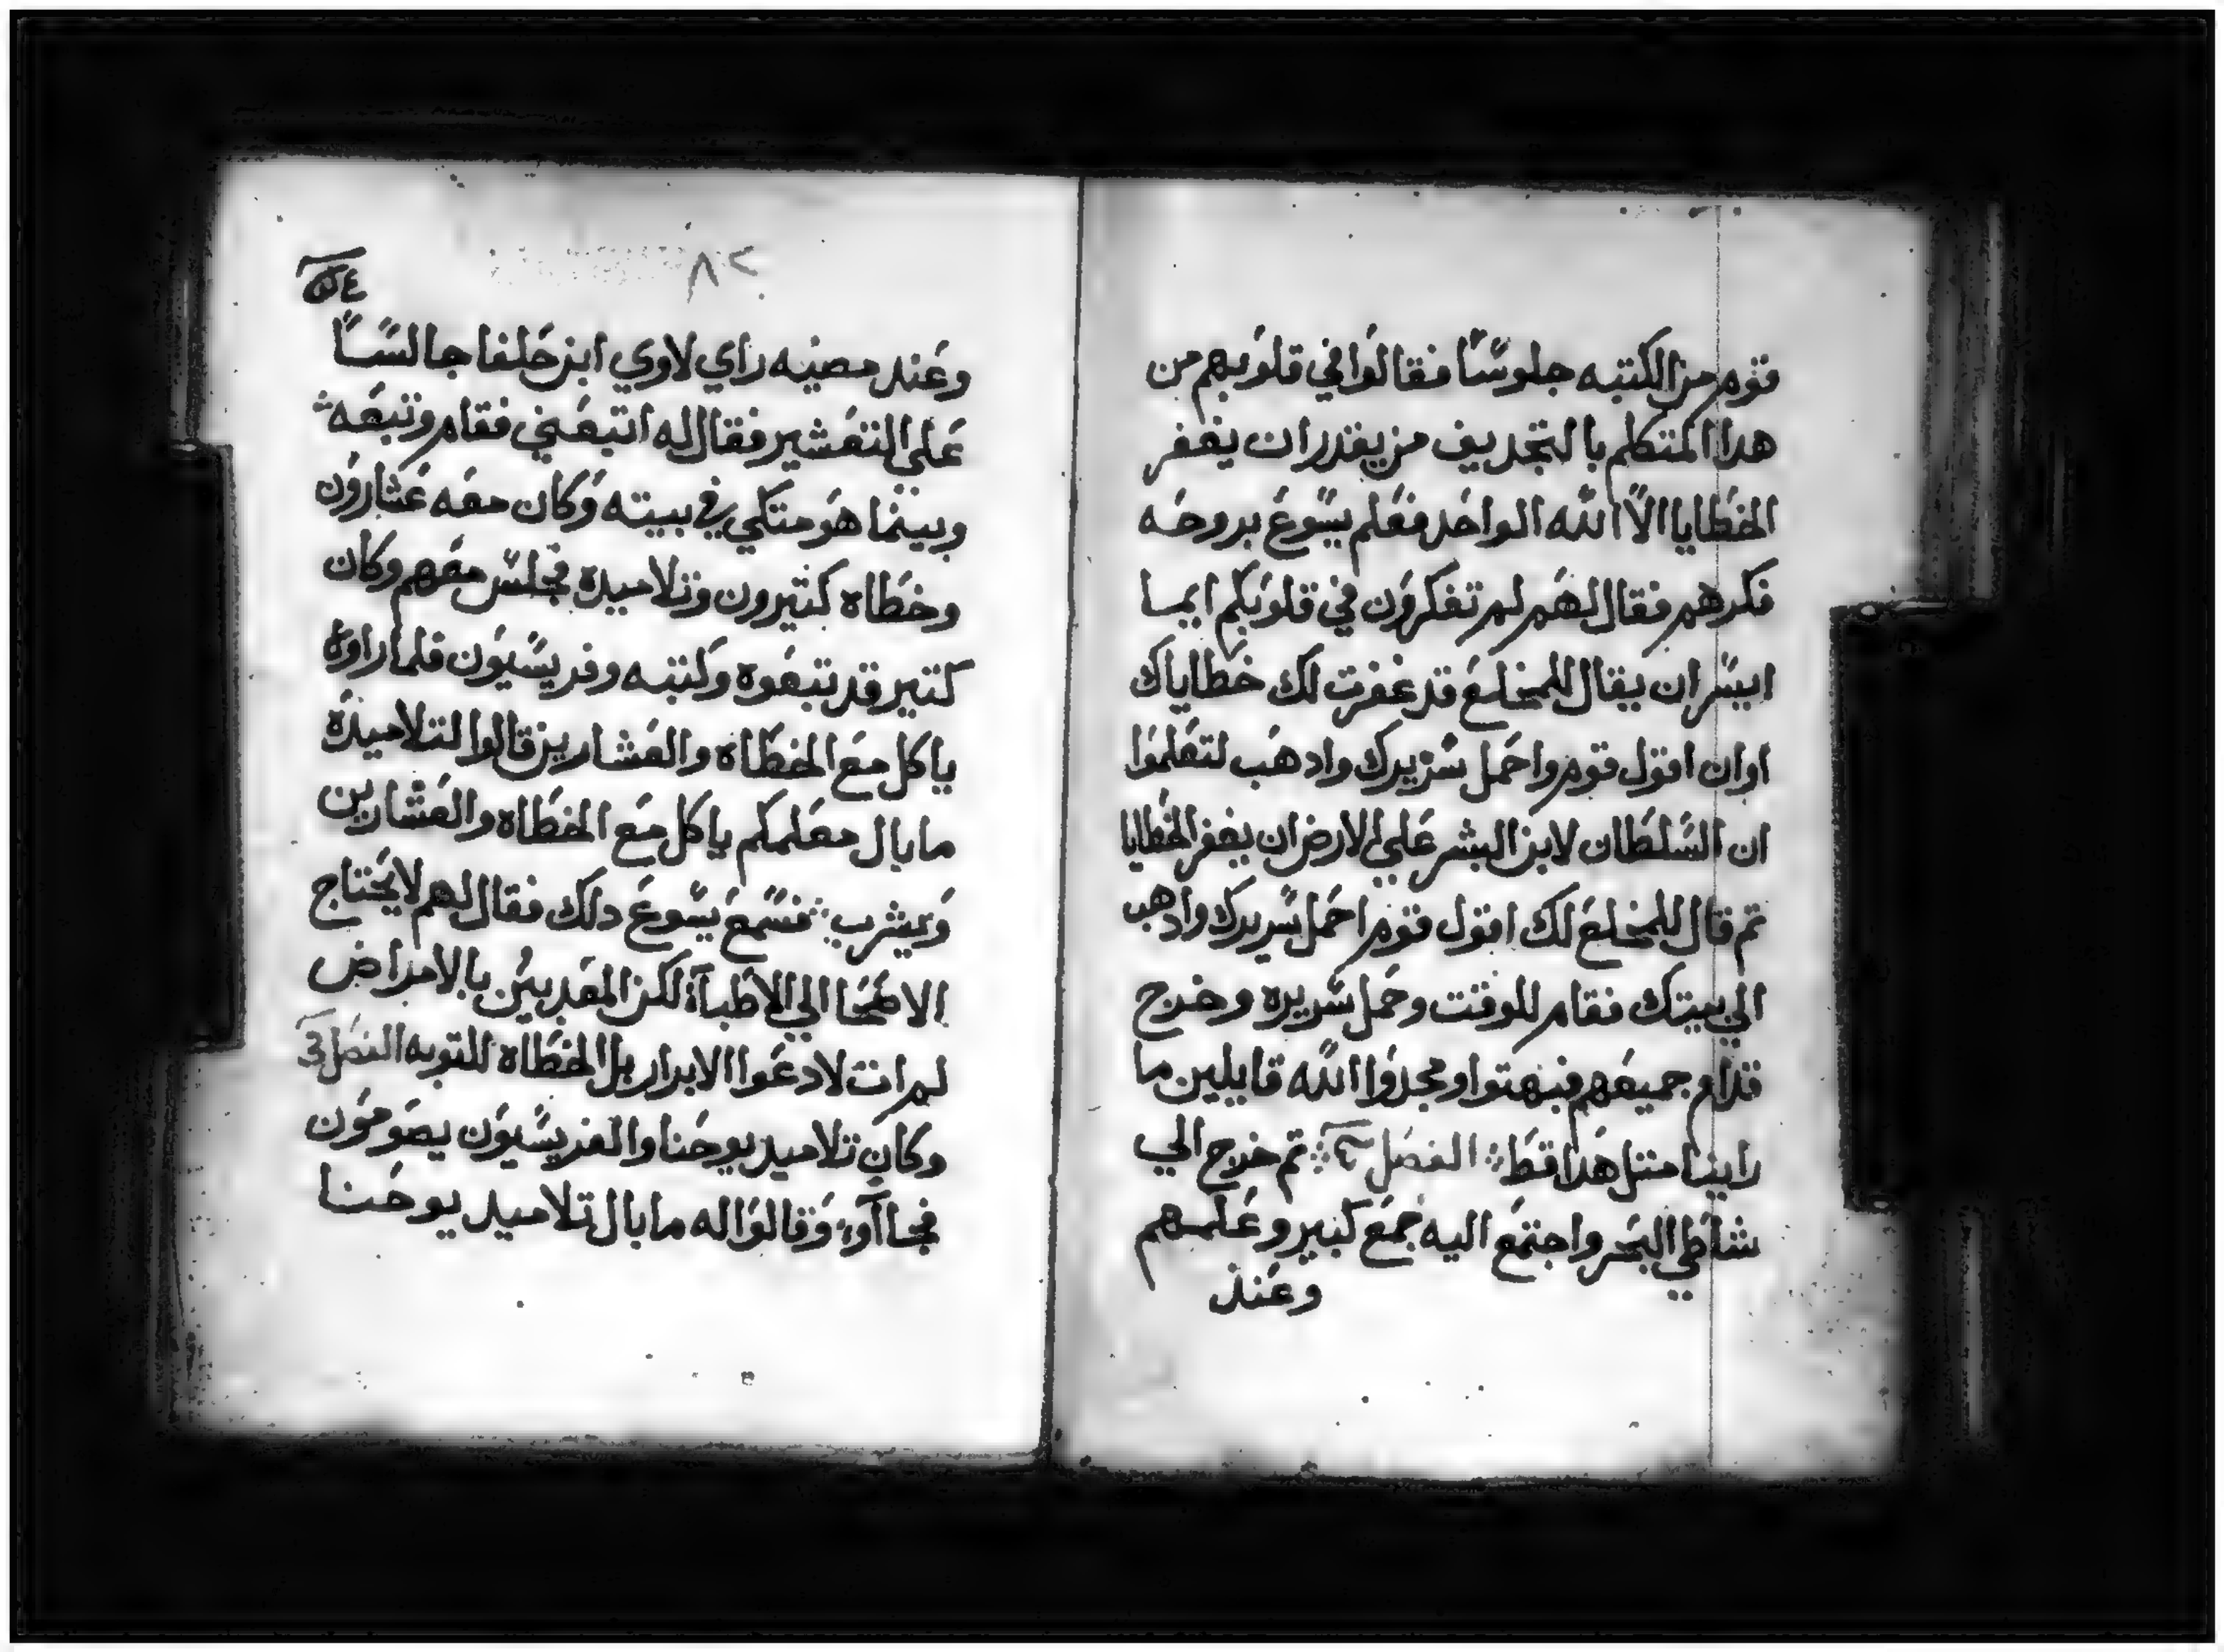 قوم من الكتبه جلوسًا فقالوا في قلوبهم من
هدا المتكلم بالتجديف من يقدر ان يغفر
الخطايا الا الله الواحد فعلم يسوع بروحه
فكرهم فقال لهم لم تفكرون في قلوبكم ايما
ايسر ان يقال للمخلع قد غفرت لك خطاياك
او ان اقول قوم واحمل سريرك وادهب لتعلموا
ان السلطان لابن البشر علي الارض ان يغفر الخطايا
تم قال للمخلع لك اقول قوم احمل سريرك وادهب
الي بيتك فقام للوقت وحمل سريره وخرج
قدام جميعهم فبهتوا ومجدوا الله قايلين ما
راينا متل هدا قط الفصل تم خرج الي
شاطي البحر واجتمع اليه جمع كبير وعلمهم
وعند
٨٢
وعند مضيه راي لاوي ابن حلفا جالسًا
علي التعشير فقال له اتبعني فقام وتبعه
وبينما هو متكي في بيته وكان معه عشارون
وخطاه كثيرون وتلاميده فجلس معهم وكان
كتير قد تبعوه وكتبه وفريسيون فلما راوه
ياكل مع الخطاه والعشارين قالوا لتلاميده
ما بال معلمكم ياكل مع الخطاه والعشارين
ويشرب فسمع يسوع دلك فقال لهم لا يحتاج
الاصحا الي الاطبآء لكن المعدبين بالامراض
لم ات لادعوا الابرار بل الخطاه للتوبه الفصل
وكان تلاميد يوحنا والفريسيون يصومون
فجاآوه وقالوا له ما بال تلاميد يوحنا